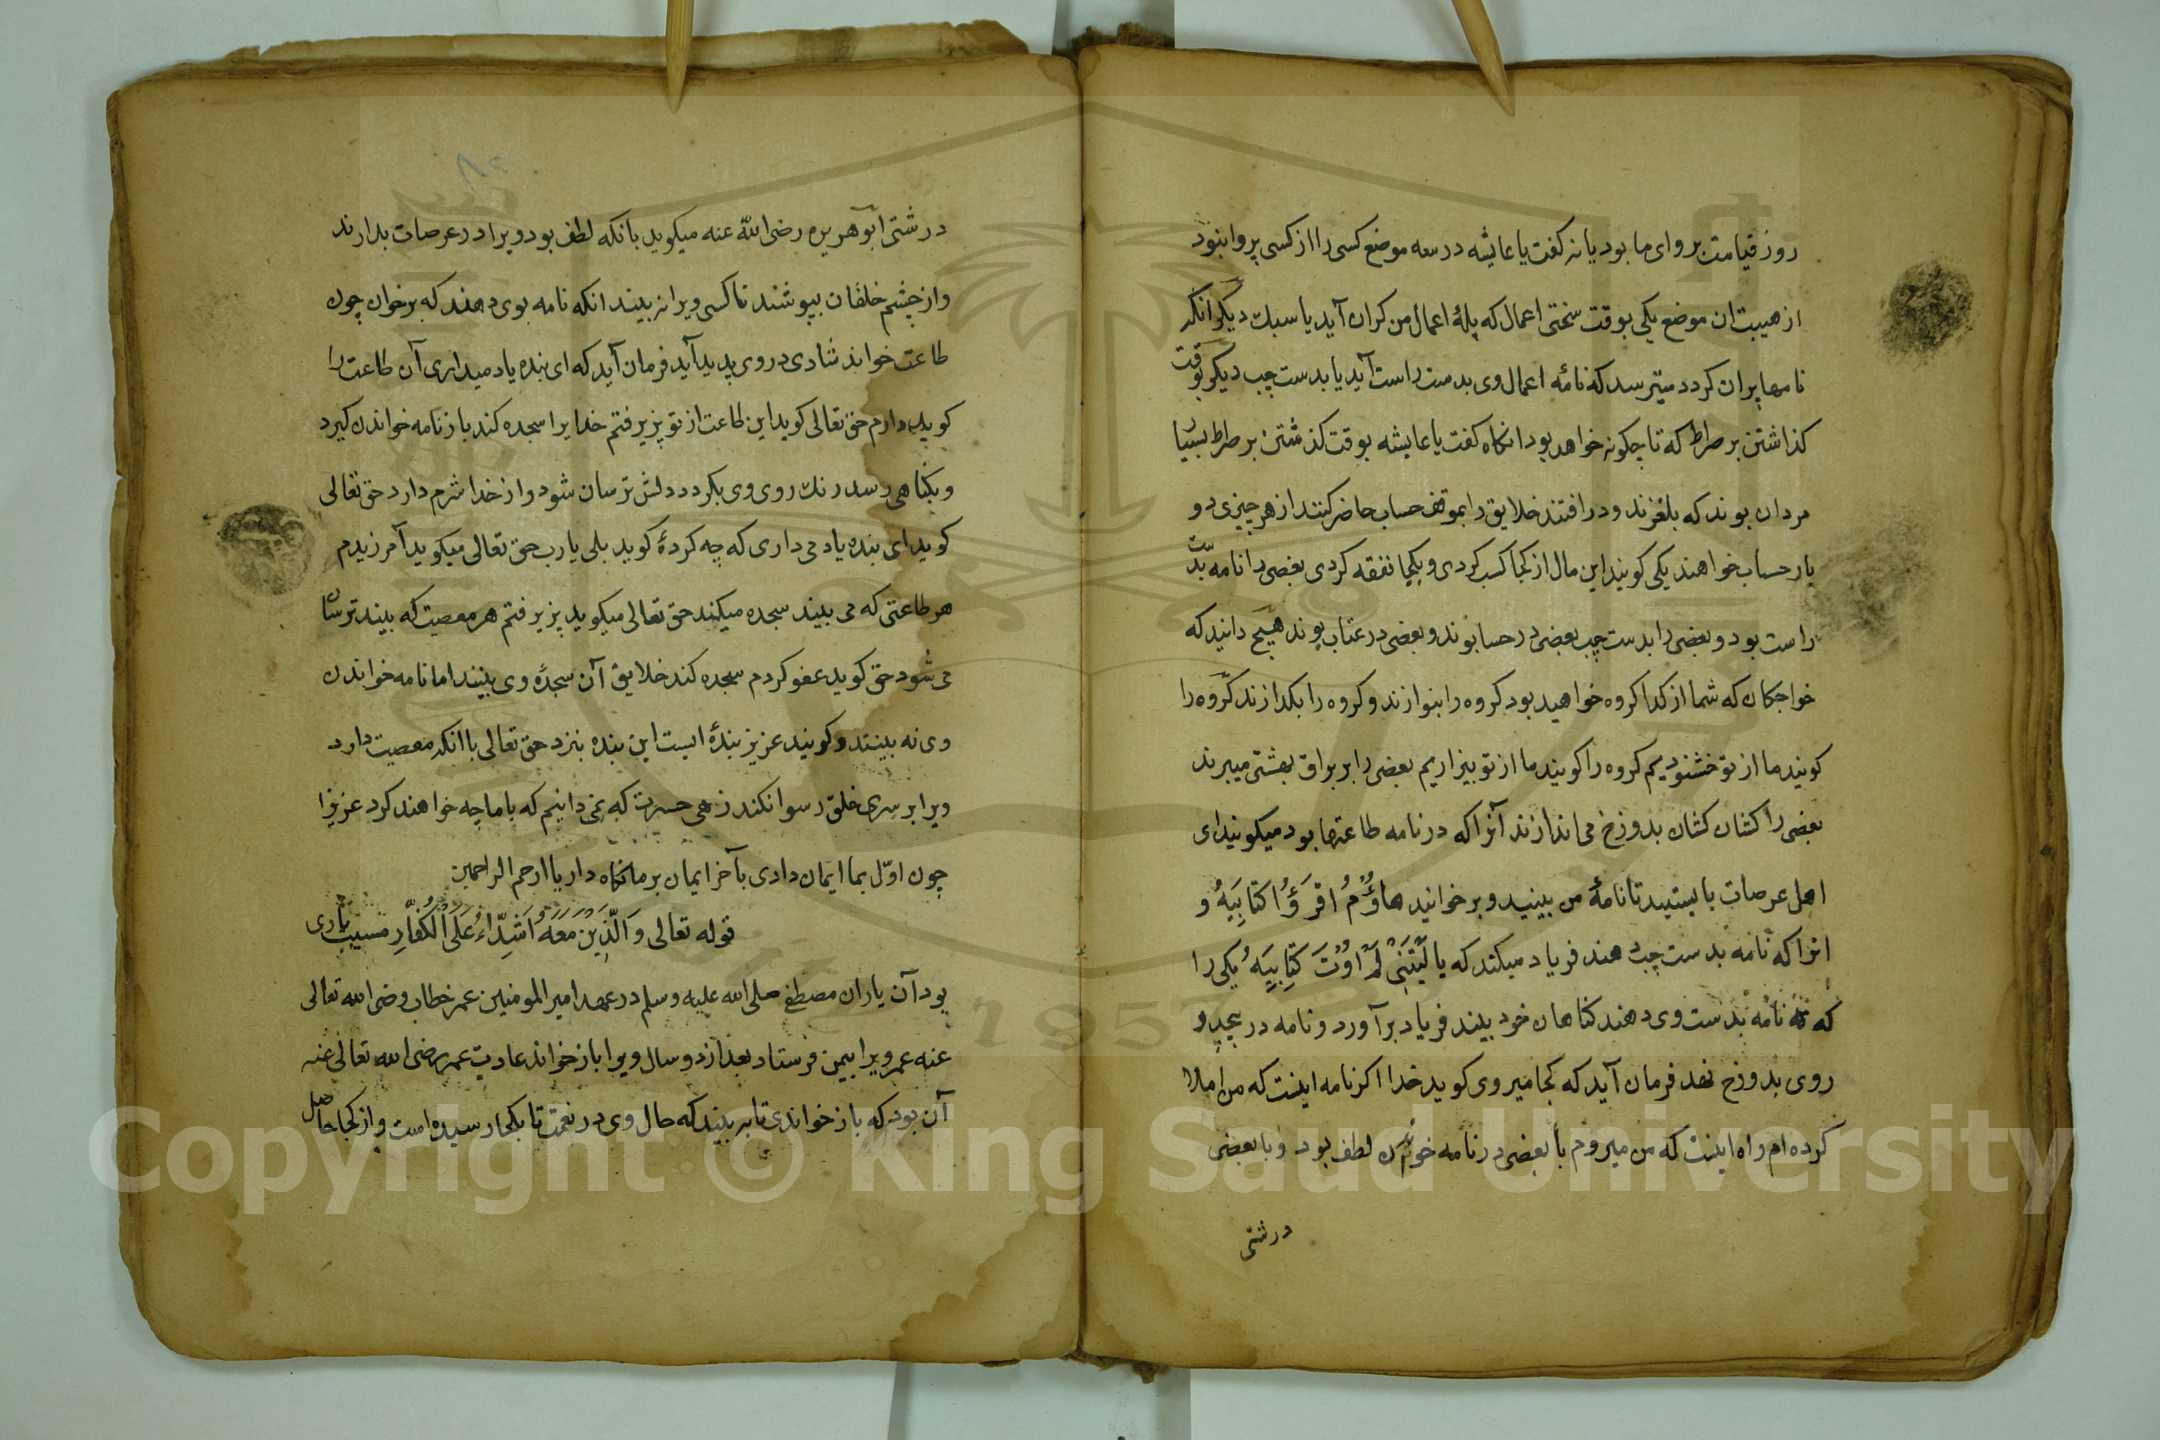 روز قیامت پروای ما بود یا نه کفت یا عایشه در سه موضع کسی را از کسی پروا بنود
از هیبت ان موضع یکی بوقت سختی اعمال که پلۀ اعمال من کران آید یا سبك دیکر انکه
نامها پران کردد میترسد که نامۀ اعمال وی بدست راست آید یا بدست چب دیکر بوقت
کذاشتن بر صراط که تا چکونه خواهد بود انکاه کفت یا عایشه بوقت کذشتن بر صراط بسیار
مردان بوند که بلغزند و در افتند خلایق را بموقف حساب حاضر کنند از هر چیزی دو
بار حساب خواهند یکی کویند این مال از کجا کسب کردی و بکجا نفقه کردی بعضی را نامه بدست
راست بود و بعضی را بدست چب بعضی در حساب بوند و بعضی در عتاب بوند هیچ دانید که
خواجکان که شما از کدا کروه خواهید بود کروه را بنوازند و کروه را بکدازند کروه را
کویند ما از تو خشنودیم کروه را کویند ما از تو بیزاریم بعضی را بر براق بهشتی میبرند
بعضی را کشان کشان بدوزخ می اندازند آنرا که در نامه طاعتها بود میکویند ای
اهل عرصات بایستید تا نامۀ من ببینید و برخوانید هَاؤُمُ اقْرَؤُا كتَابِيَهْ و
انرا که نامه بدست چب دهند فریاد میکند که یا لَيْتَنِي لَمْ اُوْتَ كِتَابِيَهْ یکی را
که نامه بدست وی دهند کناهان خود بیند فریاد برآورد و نامه در پیچد و
روی بدوزخ نهد فرمان آید که کجا میروی کوید خدا اکر نامه اینست که من املا
کرده ام راه اینست که من میروم با بعضی در نامه خواندن لطف بود و با بعضی
درشتی
درشتی ابوهریره رضی الله عنه میکوید بانکه لطف بود ویرا در عرصات بدارند
و از چشم خلقان بپوشند تا کسی ویرا نه بیند انکه نامه بوی دهند که برخوان چون
طاعت خواند شادی در روی پدید آید فرمان آید که ای بنده یاد میداری آن طاعت را
کوید دارم حق تعالی کوید این طاعت از تو پزیرفتم خدایرا سجده کند باز نامه خواندن کیرد
و بکناهی رسد رنك روی وی بکردد دلش ترسان شود و از خدا شرم دارد حق تعالی
کوید ای بنده یاد می داری که چه کردۀ کوید بلی یا رب حق تعالی میکوید آمرزیدم
هر طاعتی که می بیند سجده میکند حق تعالی میکوید پزیرفتم هر معصیت که بیند ترسان
می شود حق کوید عفو کردم سجده کند خلایق آن سجدۀ وی بینند اما نامه خواندن
وی نه بینند و کویند عزیز بندۀ است این بنده بنزد حق تعالی با انکه معصیت دارد
ویرا بر سری خلق رسوا نکند زهی حسرت که نمی دانیم که با ما چه خواهند کرد عزیزا
چون اوّل بما ایمان دادی بآخر ایمان بر ما نکاه دار یا ارحم الراحمین
قوله تعالی وَالَّذِينَ مَعَهُ اَشِدَّاءُ عَلَى الْكُفَّارِ مسیب یاری
بود آن یاران مصطفی صلی الله علیه وسلم در عهد امیر المومنین عمر خطاب رضی الله تعالی
عنه عمر ویرا بیمن فرستاد بعد از دو سال ویرا باز خواند عادت عمر رضی الله تعالی عنه
آن بود که باز خواندی تا به بیند که حال وی در نعمت تا بکجا رسیده است و از کجا حاصل
Copyright © King Saud University
1957